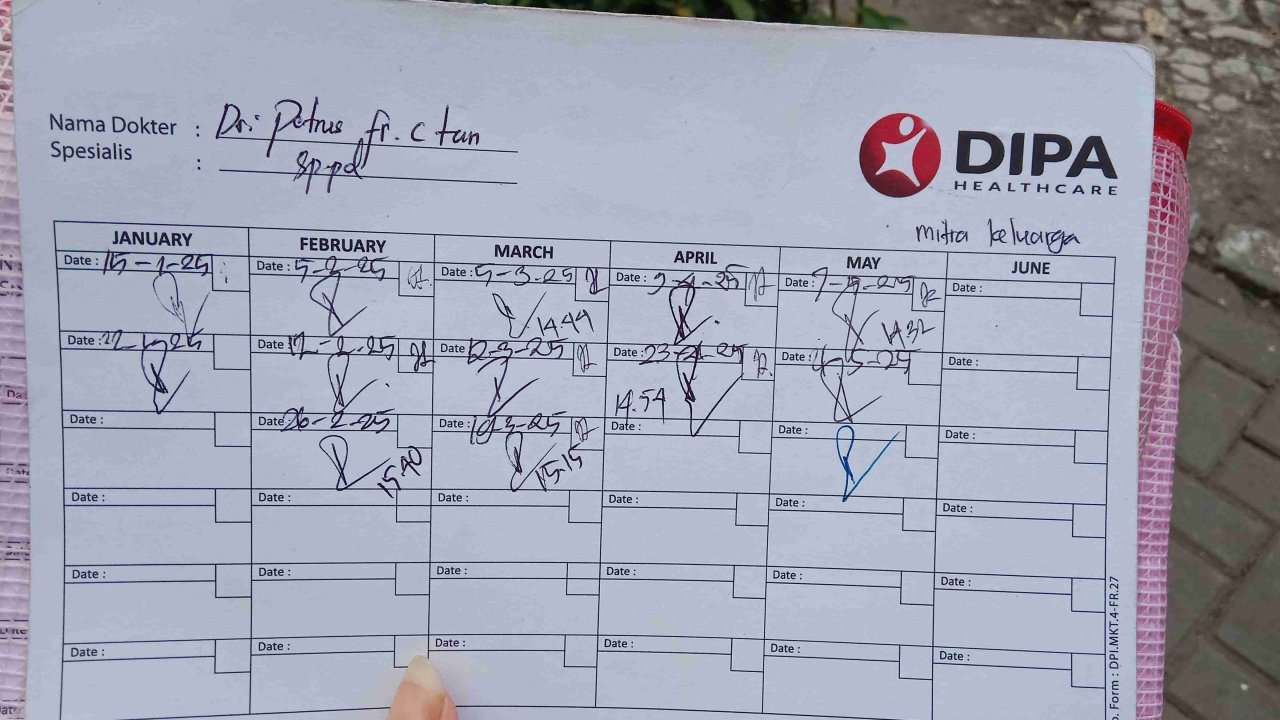 Nama Dokter : Dr. Petrus fr. C tan
Spesialis : Sp.pd
DIPA
HEALTHCARE
mitra keluarga
JANUARY FEBRUARY MARCH APRIL MAY JUNE
Date : 15-1-25 Date : 5-2-25 Date : 5-3-25 Date : 9-4-25 Date : 7-5-25 Date :
14.49 14.32
Date : 22-1-25 Date : 12-2-25 Date : 12-3-25 Date : 23-4-25 Date : Date :
14.54
Date : Date : 26-2-25 Date : 19-3-25 Date : Date : Date :
15.15
Date : Date : Date : Date : Date : Date :
Date : Date : Date : Date : Date : Date :
Date : Date : Date : Date : Date : Date :
Form : DPI.MKT.4-FR.27